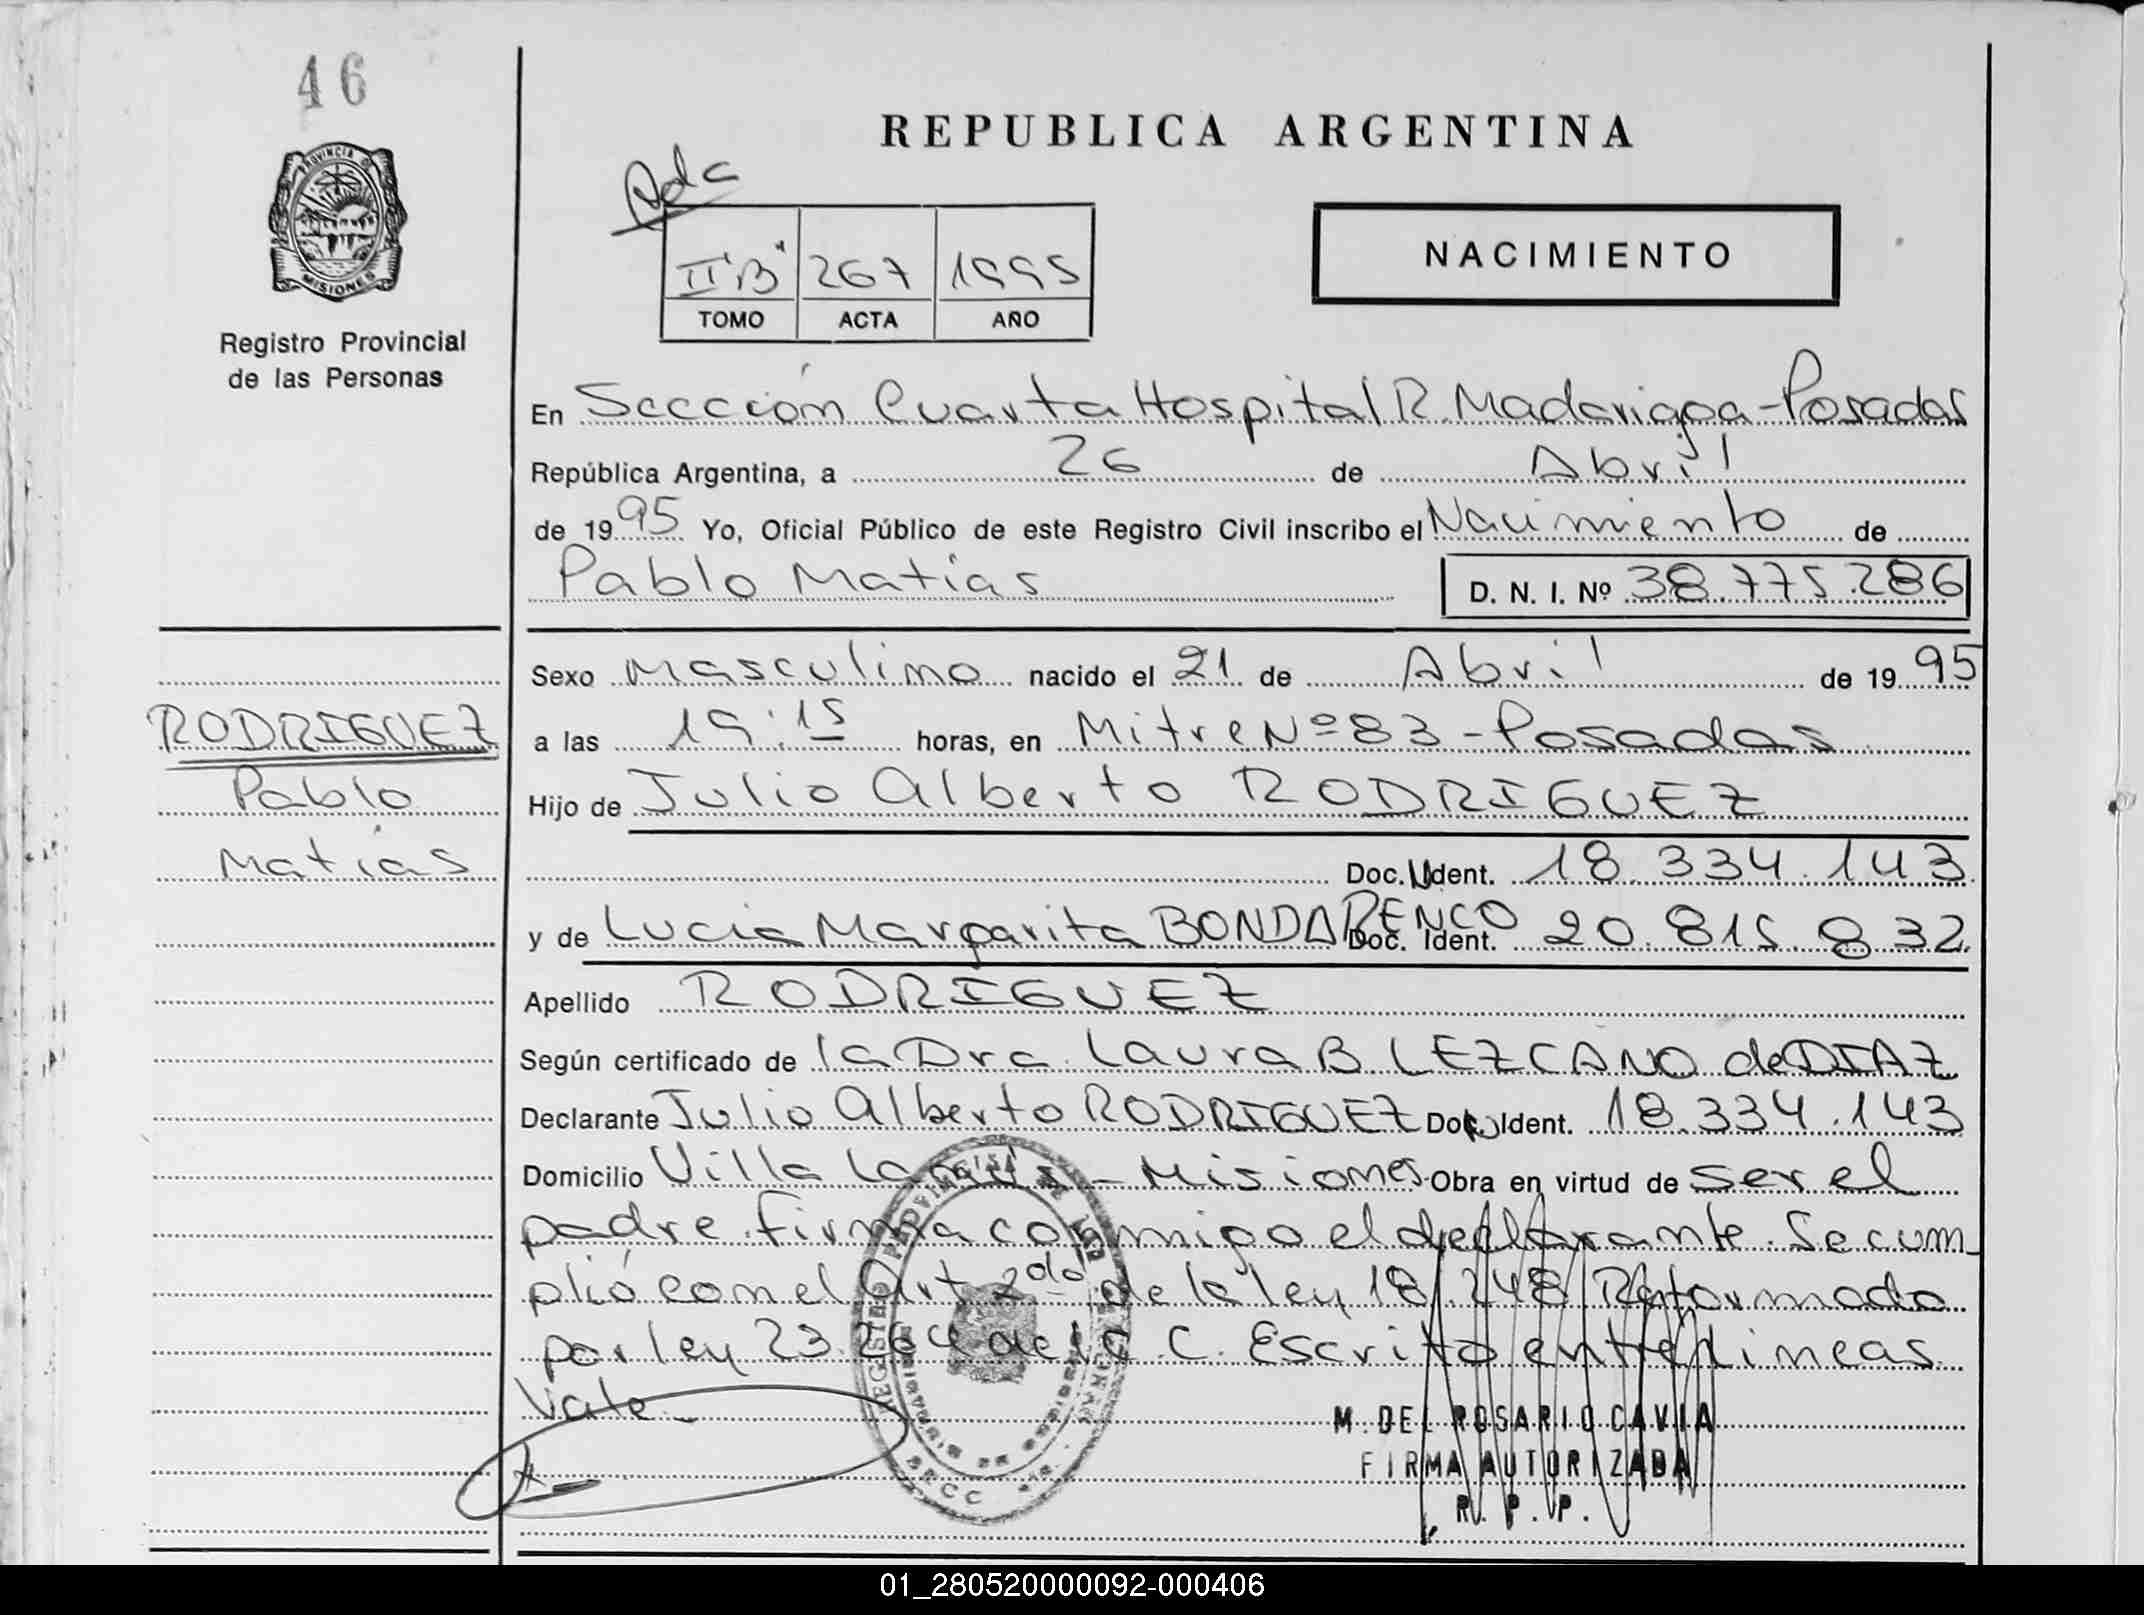 46
REPUBLICA ARGENTINA
PROVINCIA DE
MISIONES
Registro Provincial
de las Personas
II "B" 267 1995
TOMO ACTA AÑO
NACIMIENTO
En Sección Cuarta Hospital R. Madariaga - Posadas
República Argentina, a 26 de Abril
de 1995 Yo, Oficial Público de este Registro Civil inscribo el Nacimiento de
Pablo Matías D. N. I. Nº 38.775.286
Sexo Masculino nacido el 21 de Abril de 1995
RODRIGUEZ
Pablo
Matías
a las 19:15 horas, en Mitre Nº 83 - Posadas
Hijo de Julio Alberto RODRIGUEZ
Doc. Ident. 18.334.143
y de Lucia Margarita BONDARENCO Doc. Ident. 20.815.832
Apellido RODRIGUEZ
Según certificado de la Dra. Laura B LEZCANO de DIAZ
Declarante Julio Alberto RODRIGUEZ Doc. Ident. 18.334.143
Domicilio Villa Lanús - Misiones Obra en virtud de ser el
padre. firma conmigo el declarante. Se cum-
plió con el Art 2do de la ley 18.248 Reformada
por ley 23.264 de la C. Escrito entrelineas
Vale-
M. DEL ROSARIO CAVIA
FIRMA AUTORIZADA
R. P. P.
01_280520000092-000406